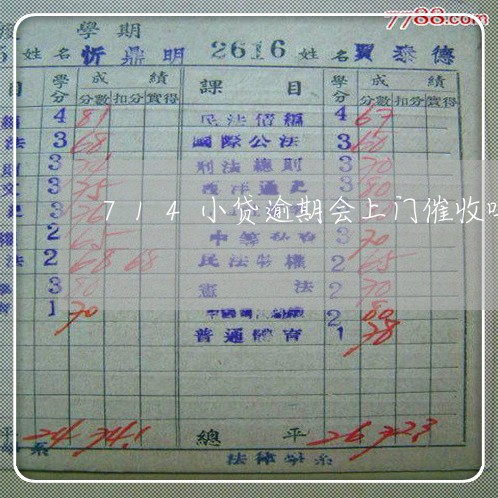 7788.com
度 學期
5 姓名 忻鼎明 2616 姓名 賈泰德
目 學分 成績 課目 學分 成績
分數 扣分 實得 分數 扣分 實得
4 81 民法債編 4 67
法 3 68 國際公法 3 60
則 3 刑法總則 3 70
文 3 75 西洋通史 3 80
史 3 76
714小贷逾期会上门催收吗
2 65 3 70
法 2 68 68 民法物權 2 65
3 80 憲法 2 70
育 1 70 2 80
普通體育 1 78
平 24 74.1 總平 26 72.3
系 法律學系